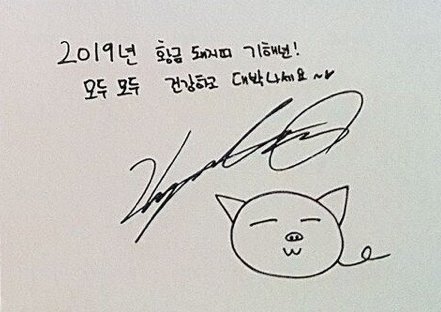 2019년 황금 돼지띠 기해년!
모두 모두 건강하고 대박나세요~♥